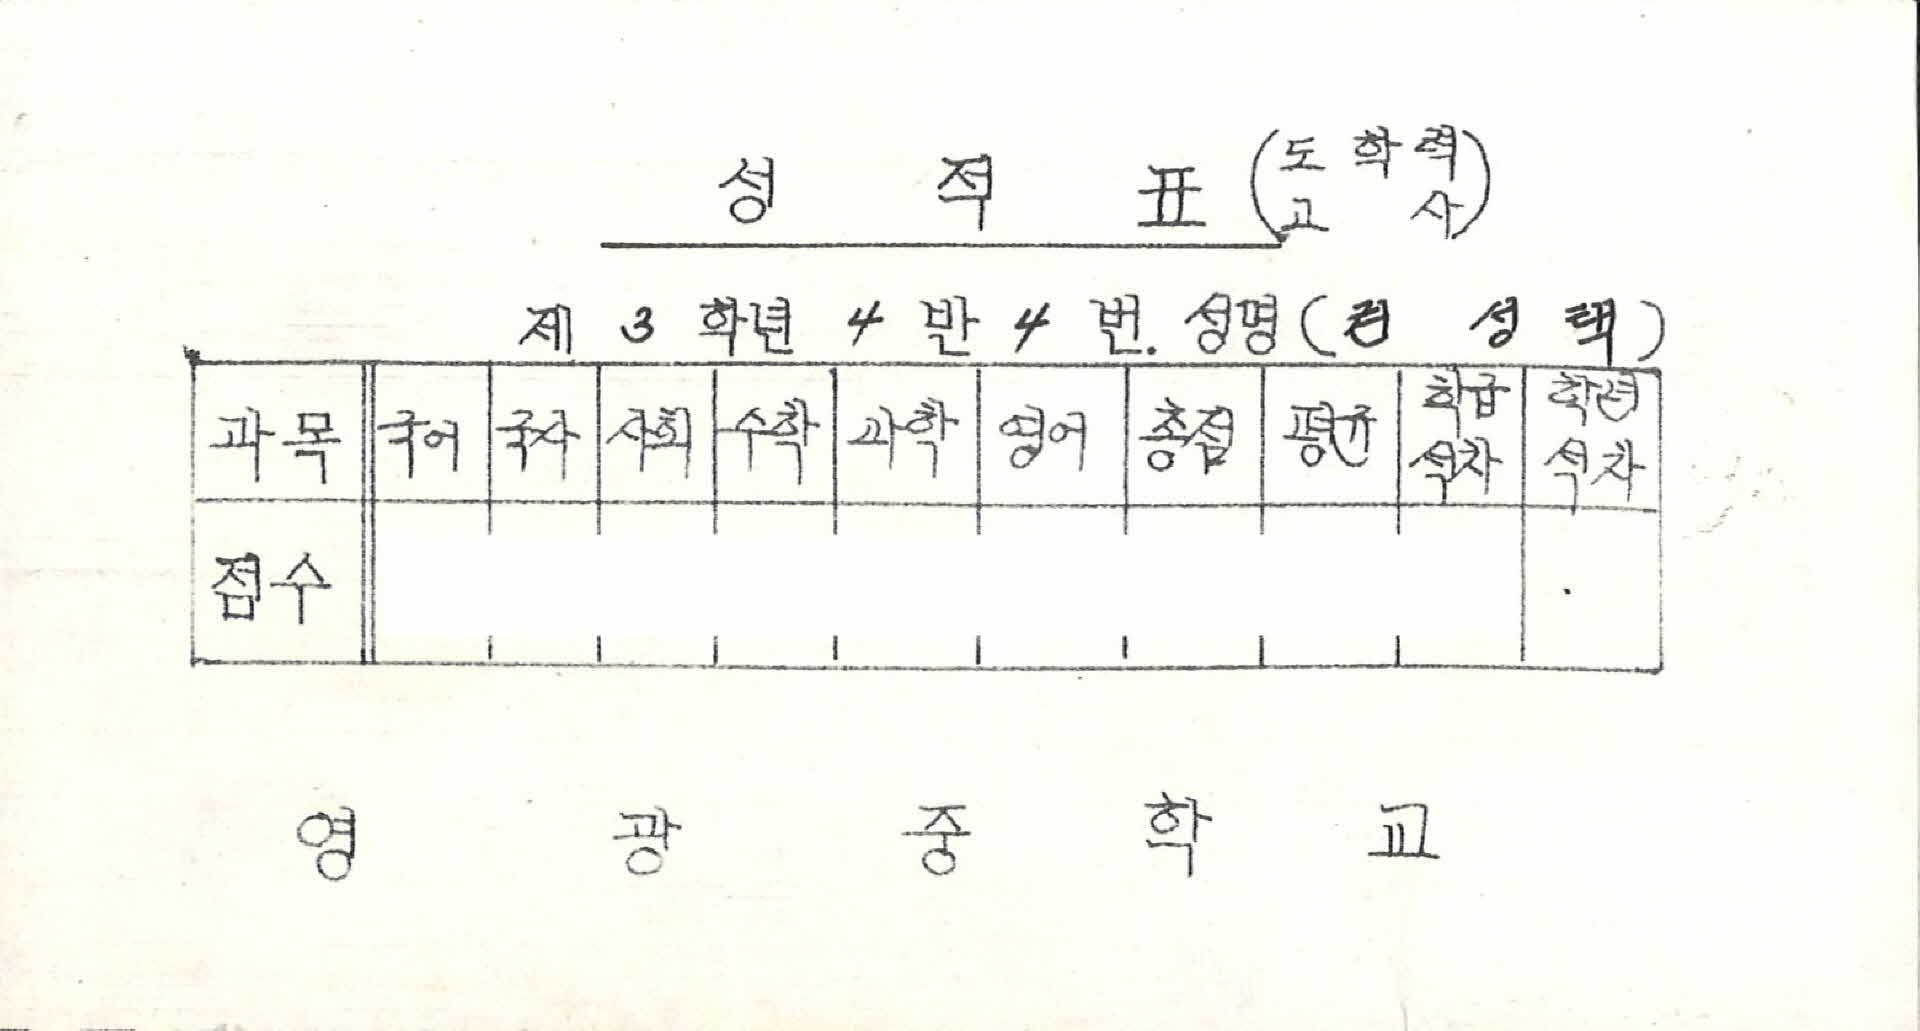 성적표 (도학력고사)
제 3 학년 4 반 4 번. 성명 ( 성택)
과목 국어 국사 사회 수학 과학 영어 총점 평균 학급석차 학년석차
점수
영광중학교